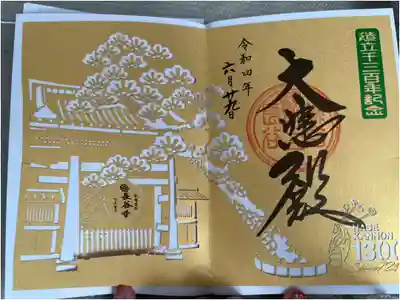 造立千三百年記念
大悲殿
令和四年
六月廿九日
長谷寺
HASE
KANNON
1300